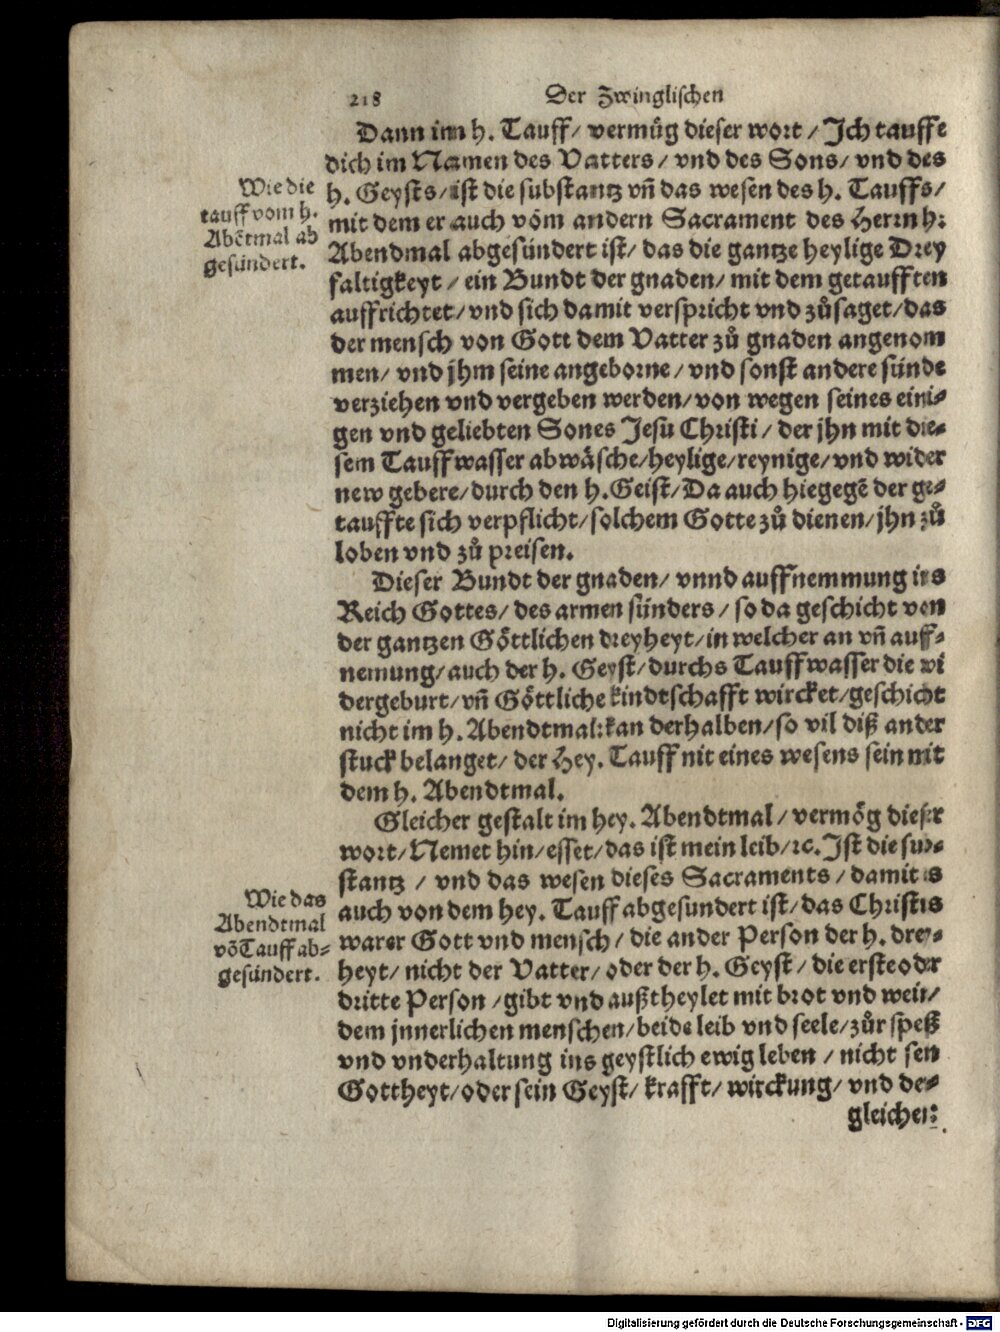 218 Der Zwinglischen
Dann im h. Tauff/ vermüg dieser wort/ Jch tauffe
dich im Namen des Vatters/ vnd des Sons/ vnd des
h. Geysts/ ist die substantz vn̄ das wesen des h. Tauffs/
mit dem er auch vom andern Sacrament des Herrn h:
Abendmal abgesündert ist/ das die gantze heylige Drey
faltigkeyt/ ein Bundt der gnaden/ mit dem getaufften
auffrichtet/ vnd sich damit verspricht vnd zůsaget/ das
der mensch von Gott dem Vatter zů gnaden angenom
men/ vnd jhm seine angeborne/ vnd sonst andere sünde
verziehen vnd vergeben werden/ von wegen seines eini-
gen vnd geliebten Sones Jesu Christi/ der jhn mit die-
sem Tauffwasser abwäsche/ heylige/ reynige/ vnd wider
new gebere/ durch den h. Geist/ Da auch hiegegē der ge-
tauffte sich verpflicht/ solchem Gotte zů dienen/ jhn zů
loben vnd zů preisen.
Wie die
tauff vom h.
Abētmal ab
gesündert.
Dieser Bundt der gnaden/ vnnd auffnemmung ins
Reich Gottes/ des armen sünders/ so da geschicht von
der gantzen Göttlichen dreyheyt/ in welcher an vn̄ auff-
nemung/ auch der h. Geyst/ durchs Tauffwasser die wi
dergeburt/ vn̄ Göttliche kindtschafft wircket/ geschicht
nicht im h. Abendtmal: kan derhalben/ so vil diß ander
stuck belanget/ der Hey. Tauff nit eines wesens sein mit
dem h. Abendtmal.
Gleicher gestalt im hey. Abendtmal/ vermög dieser
wort/ Nemet hin/ esset/ das ist mein leib/ ꝛc. Jst die sub-
stantz/ vnd das wesen dieses Sacraments/ damit es
auch von dem hey. Tauff abgesundert ist/ das Christus
warer Gott vnd mensch/ die ander Person der h. drey-
heyt/ nicht der Vatter/ oder der h. Geyst/ die erste oder
dritte Person/ gibt vnd außtheylet mit brot vnd wein/
dem jnnerlichen menschen/ beide leib vnd seele/ zůr speß
vnd vnderhaltung ins geystlich ewig leben/ nicht sein
Gottheyt/ oder sein Geyst/ krafft/ wirckung/ vnd de-
gleichen:
Wie das
Abendtmal
vō Tauff ab-
gesündert.
Digitalisierung gefördert durch die Deutsche Forschungsgemeinschaft - DFG